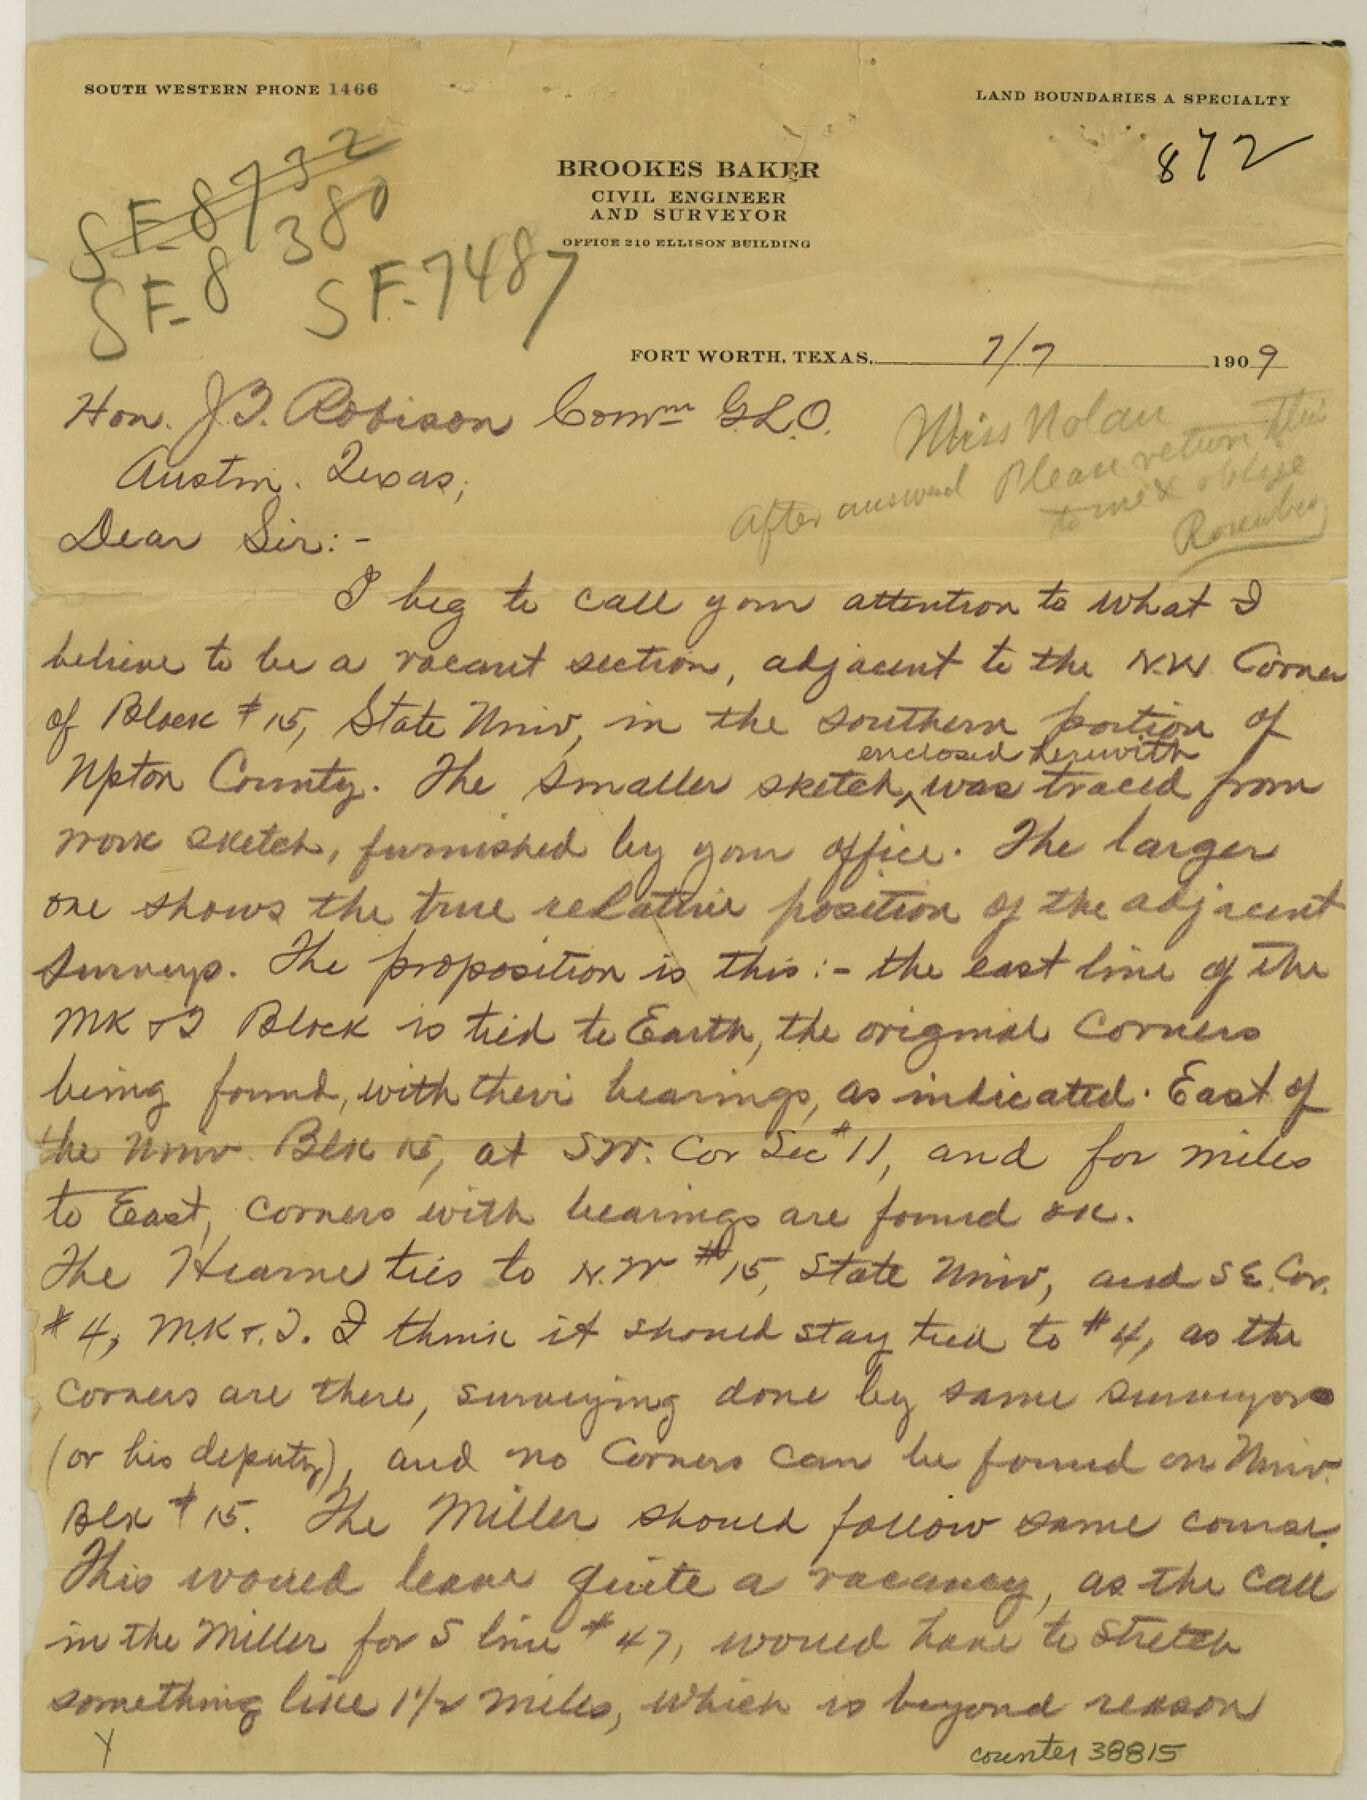 SOUTH WESTERN PHONE 1466
LAND BOUNDARIES A SPECIALTY
872
BROOKES BAKER
CIVIL ENGINEER
AND SURVEYOR
OFFICE 210 ELLISON BUILDING
SF-8732
SF-8380
SF-7487
FORT WORTH, TEXAS, 7/7 1909
Hon. J.T. Robison Comm G.L.O.
Austin. Texas;
Miss Nolan
After answered Please return this
to me & oblige
Rosenberg
Dear Sir:-
I beg to call your attention to what I
believe to be a vacant section, adjacent to the N.W. Corner
of Block #15, State Univ, in the southern portion of
Upton County. The smaller sketch, enclosed herewith was traced from
work sketch, furnished by your office. The larger
one shows the true relative position of the adjacent
surveys. The proposition is this:- the east line of the
MK & T Block is tied to Earth, the original corners
being found, with their bearings, as indicated. East of
the Univ. Blk 15, at S.W. Cor Sec #11, and for miles
to East, corners with bearings are found ok.
The Hearne ties to N.W #15, State Univ, and S.E. Cor.
#4, M.K & T. I think it should stay tied to #4, as the
corners are there, surveying done by same surveyor
(or his deputy), and no Corners can be found on Univ.
Blk #15. The Miller should follow same course.
This would leave quite a vacancy, as the call
in the Miller for S line #47, would have to stretch
something like 1 1/2 miles, which is beyond reason
Y
counter 38815